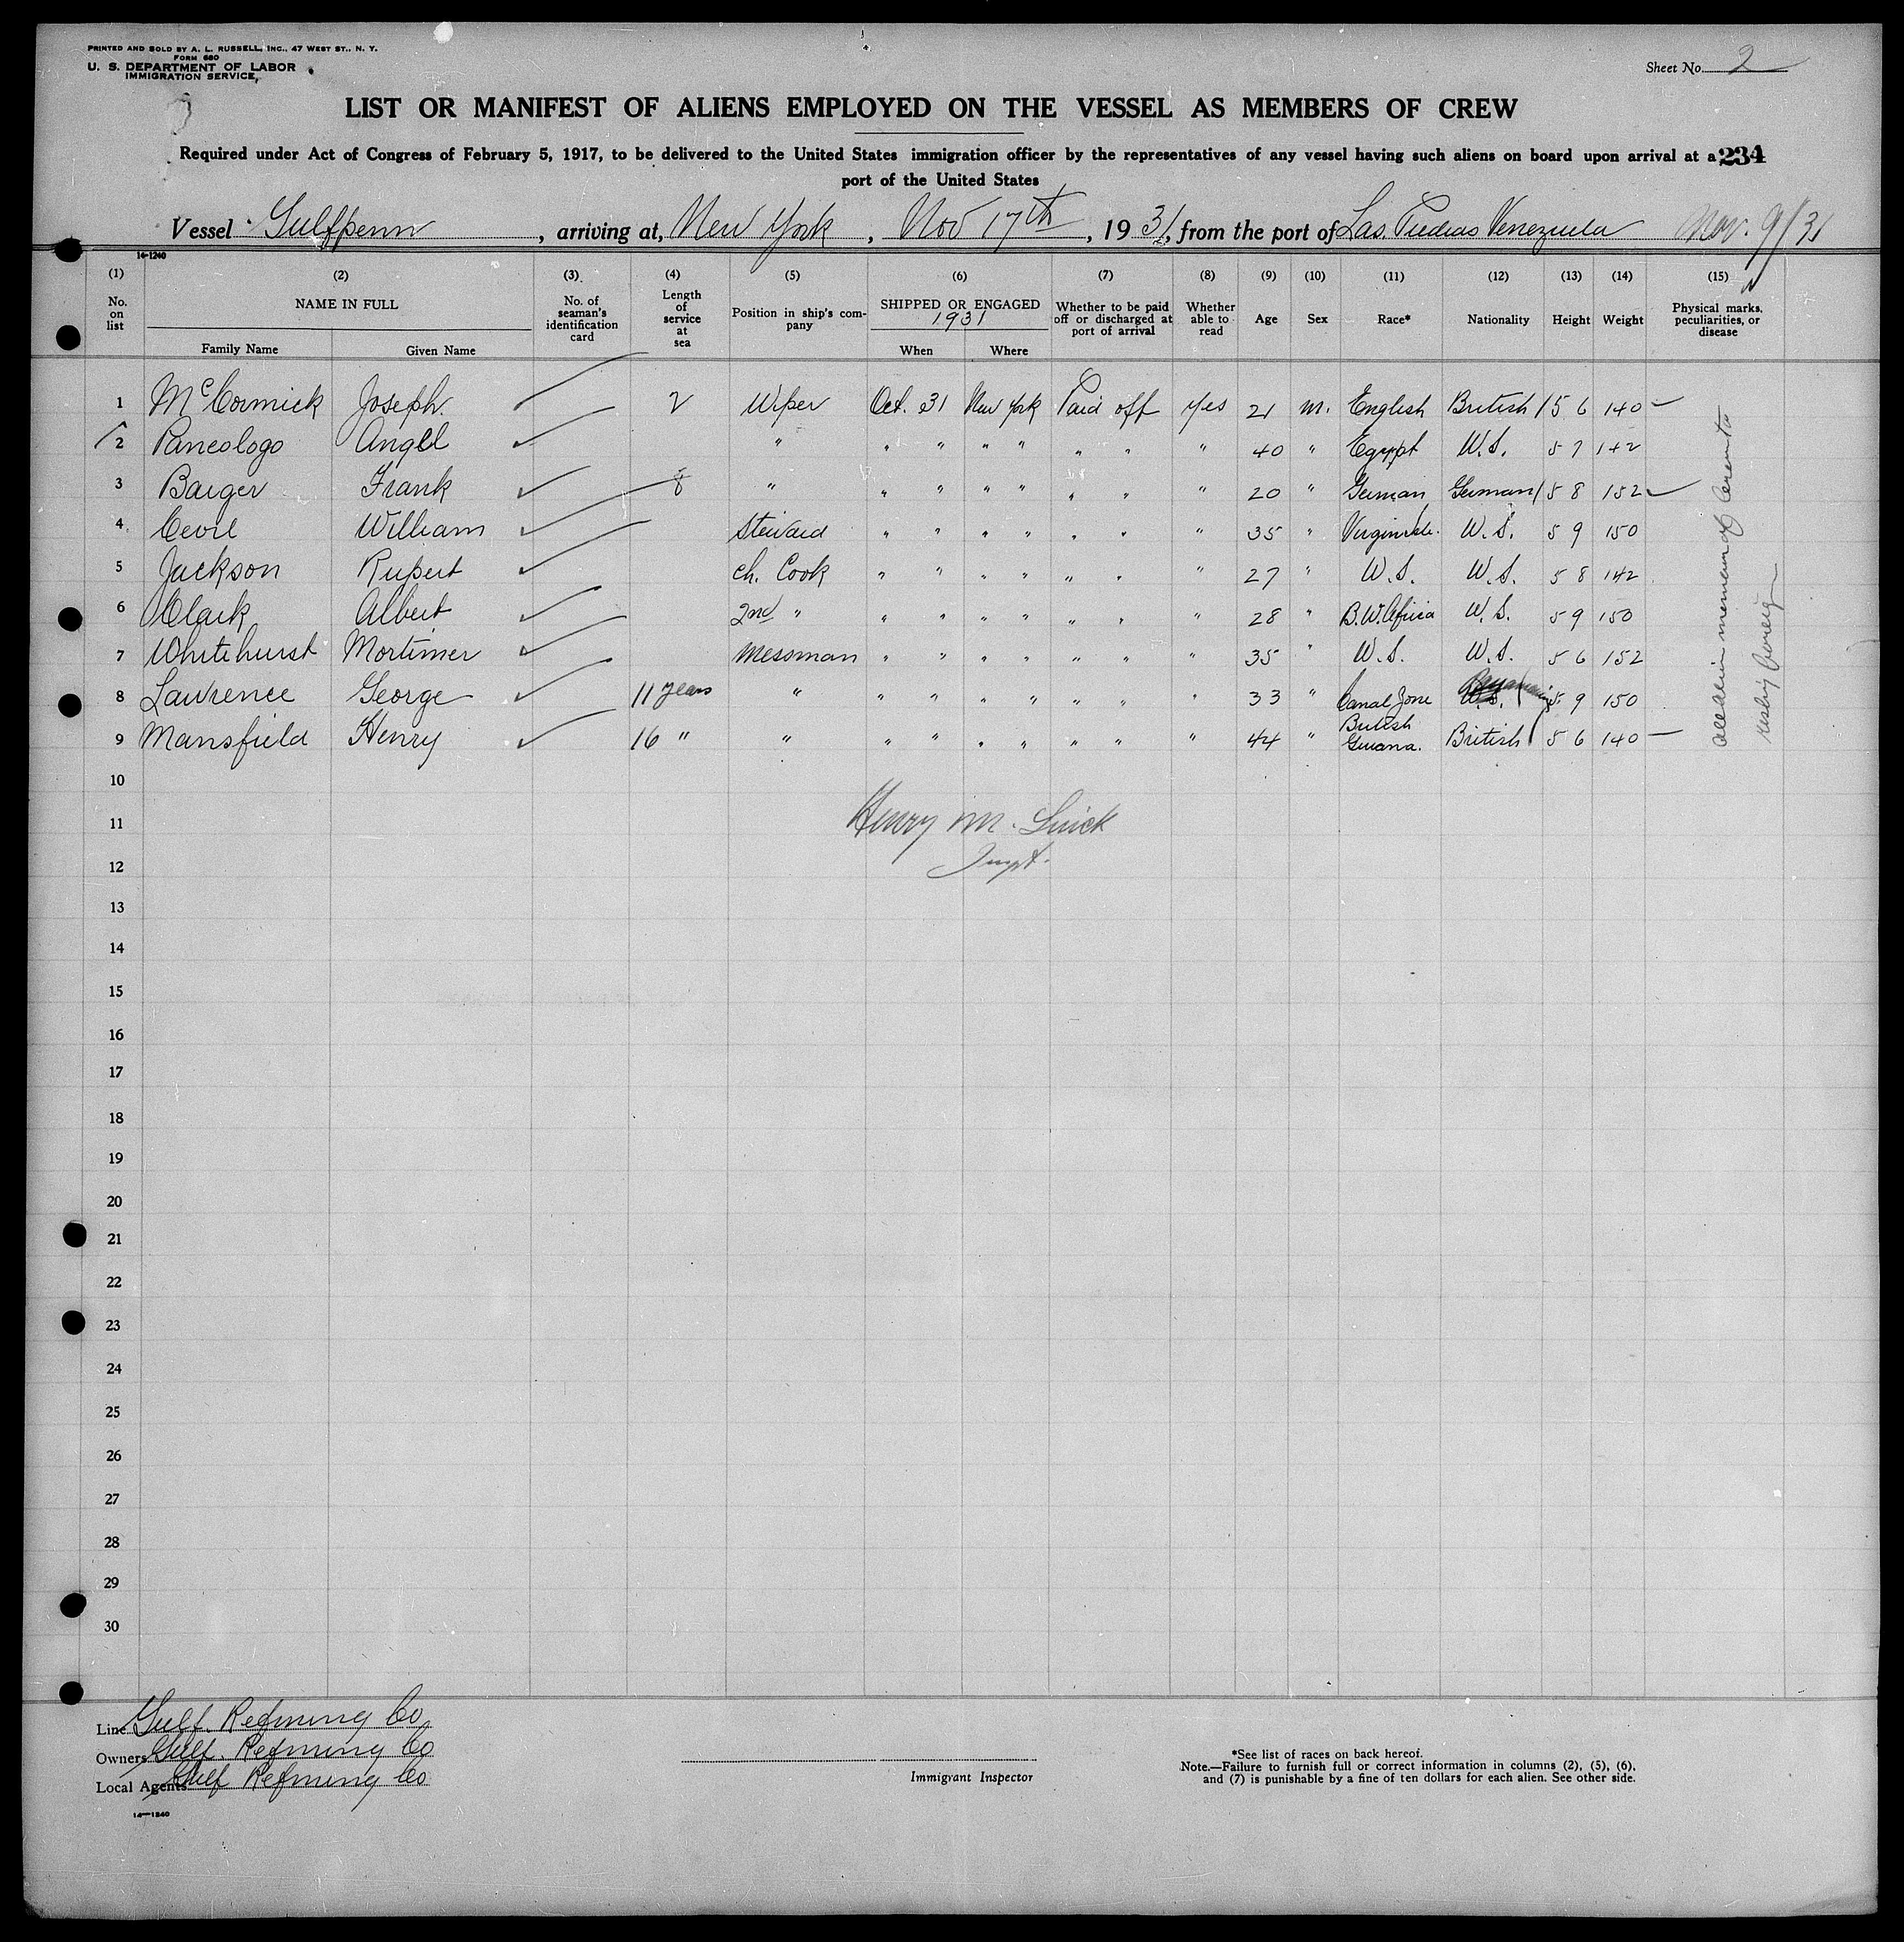 PRINTED AND SOLD BY A. L. RUSSELL, INC., 47 WEST ST., N. Y.
FORM 680
U. S. DEPARTMENT OF LABOR
IMMIGRATION SERVICE,
Sheet No. 2
LIST OR MANIFEST OF ALIENS EMPLOYED ON THE VESSEL AS MEMBERS OF CREW
Required under Act of Congress of February 5, 1917, to be delivered to the United States immigration officer by the representatives of any vessel having such aliens on board upon arrival at a 234
port of the United States
Vessel Gulfpenn, arriving at, New York, Nov 17th, 1931, from the port of Las Piedras Venezuela Nov. 9/31
14-1240
(1) (2) (3) (4) (5) (6) (7) (8) (9) (10) (11) (12) (13) (14) (15)
No. on list NAME IN FULL Family Name Given Name No. of seaman's identification card Length of service at sea Position in ship's company SHIPPED OR ENGAGED 1931 When Where Whether to be paid off or discharged at port of arrival Whether able to read Age Sex Race* Nationality Height Weight Physical marks, peculiarities, or disease
1 McCormick Joseph 2 Wiper Oct. 31 New York Paid off Yes 21 m. English British 5 6 140
2 Paneologo Angel " " " " " " " " 40 " Egypt U.S. 5 7 142
3 Barger Frank 8 " " " " " " " " 20 " German German 5 8 152
4 William Steward " " " " " " " 35 " U.S. 5 9 150
5 Jackson Rupert Ch. Cook " " " " " " " 27 " U.S. U.S. 5 8 142
6 Clark Albert 2nd " " " " " " " " 28 " B.W. Africa U.S. 5 9 150
7 Whitehurst Mortimer Messman " " " " " " " 35 " U.S. U.S. 5 6 152
8 Lawrence George 11 years " " " " " " " " 33 " Canal Zone U.S. 5 9 150
9 Mansfield Henry 16 " " " " " " " " " 44 " British Guiana. British 5 6 140
10
11
12
Henry M.
Inspt.
13
14
15
16
17
18
19
20
21
22
23
24
25
26
27
28
29
30
Line Gulf. Refining Co
Owners Gulf. Refining Co
Local Agents Gulf Refining Co
Immigrant Inspector
*See list of races on back hereof.
Note.—Failure to furnish full or correct information in columns (2), (5), (6),
and (7) is punishable by a fine of ten dollars for each alien. See other side.
14—1240